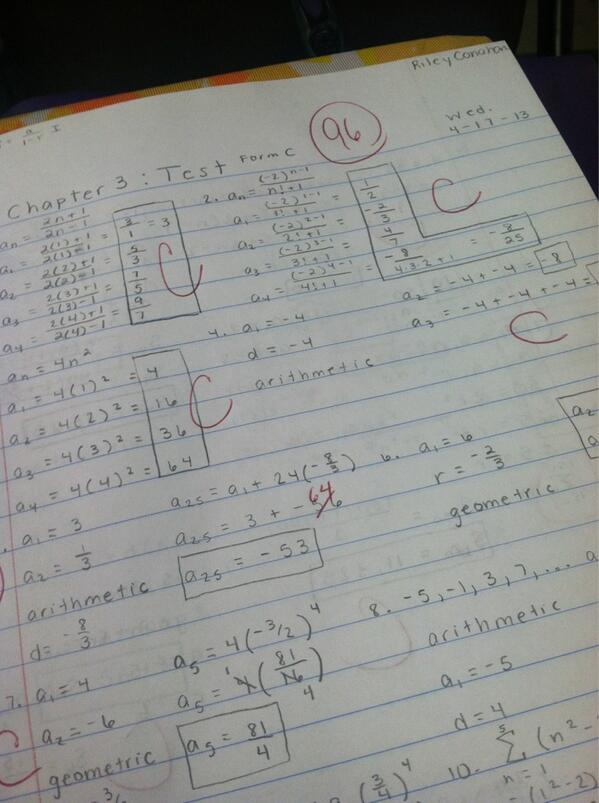 Riley Conahan
a/(1-r)
Wed.
4-17-13
96
Chapter 3: Test Form C
an = (2n+1)/(2n-1)
a1 = (2(1)+1)/(2(1)-1) = 3/1 = 3
a2 = (2(2)+1)/(2(2)-1) = 5/3
a3 = (2(3)+1)/(2(3)-1) = 7/5
a4 = (2(4)+1)/(2(4)-1) = 9/7
C
2. an = (-2)^(n-1)/(n!+1)
a1 = (-2)^(1-1)/(1!+1) = 1/2
a2 = (-2)^(2-1)/(2!+1) = -2/3
a3 = (-2)^(3-1)/(3!+1) = 4/7
a4 = (-2)^(4-1)/(4!+1) = -8/(4·3·2+1) = -8/25
C
an = 4n²
a1 = 4(1)² = 4
a2 = 4(2)² = 16
a3 = 4(3)² = 36
a4 = 4(4)² = 64
C
4. a1 = -4
d = -4
arithmetic
a2 = -4 + -4 = -8
a3 = -4 + -4 + -4 =
C
a1 = 3
a2 = 1/3
arithmetic
d = -8/3
a25 = a1 + 24(-8/3)
64
a25 = 3 + -
a25 = -53
6. a1 = 6
r = -2/3
geometric
a2
7. a1 = 4
a2 = -6
geometric
a5 = 4(-3/2)^4
a5 = 4(81/16)
1
4
a5 = 81/4
C
8. -5, -1, 3, 7, ...
arithmetic
a1 = -5
d = 4
(3/4)^4
10. 5 Σ n=1 (n² -
(1² - 2)